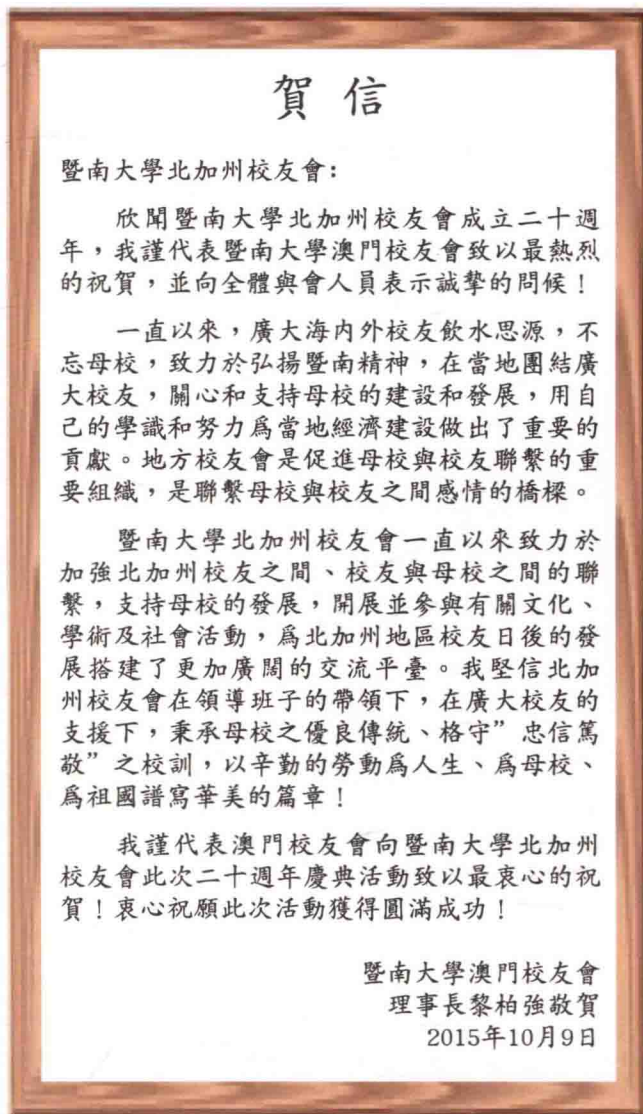 賀信
暨南大學北加州校友會：
欣聞暨南大學北加州校友會成立二十週
年，我謹代表暨南大學澳門校友會致以最熱烈
的祝賀，並向全體與會人員表示誠摯的問候！
一直以來，廣大海内外校友飲水思源，不
忘母校，致力於弘揚暨南精神，在當地團結廣
大校友，關心和支持母校的建設和發展，用自
己的學識和努力爲當地經濟建設做出了重要的
貢獻。地方校友會是促進母校與校友聯繫的重
要組織，是聯繫母校與校友之間感情的橋樑。
暨南大學北加州校友會一直以來致力於
加強北加州校友之間、校友與母校之間的聯
繫，支持母校的發展，開展並參與有關文化、
學術及社會活動，爲北加州地區校友日後的發
展搭建了更加廣闊的交流平臺。我堅信北加
州校友會在領導班子的帶領下，在廣大校友的
支援下，秉承母校之優良傳統、格守”忠信篤
敬”之校訓，以辛勤的勞動爲人生、爲母校、
爲祖國譜寫華美的篇章！
我謹代表澳門校友會向暨南大學北加州
校友會此次二十週年慶典活動致以最衷心的祝
賀！衷心祝願此次活動獲得圓滿成功！
暨南大學澳門校友會
理事長黎柏強敬賀
2015年10月9日